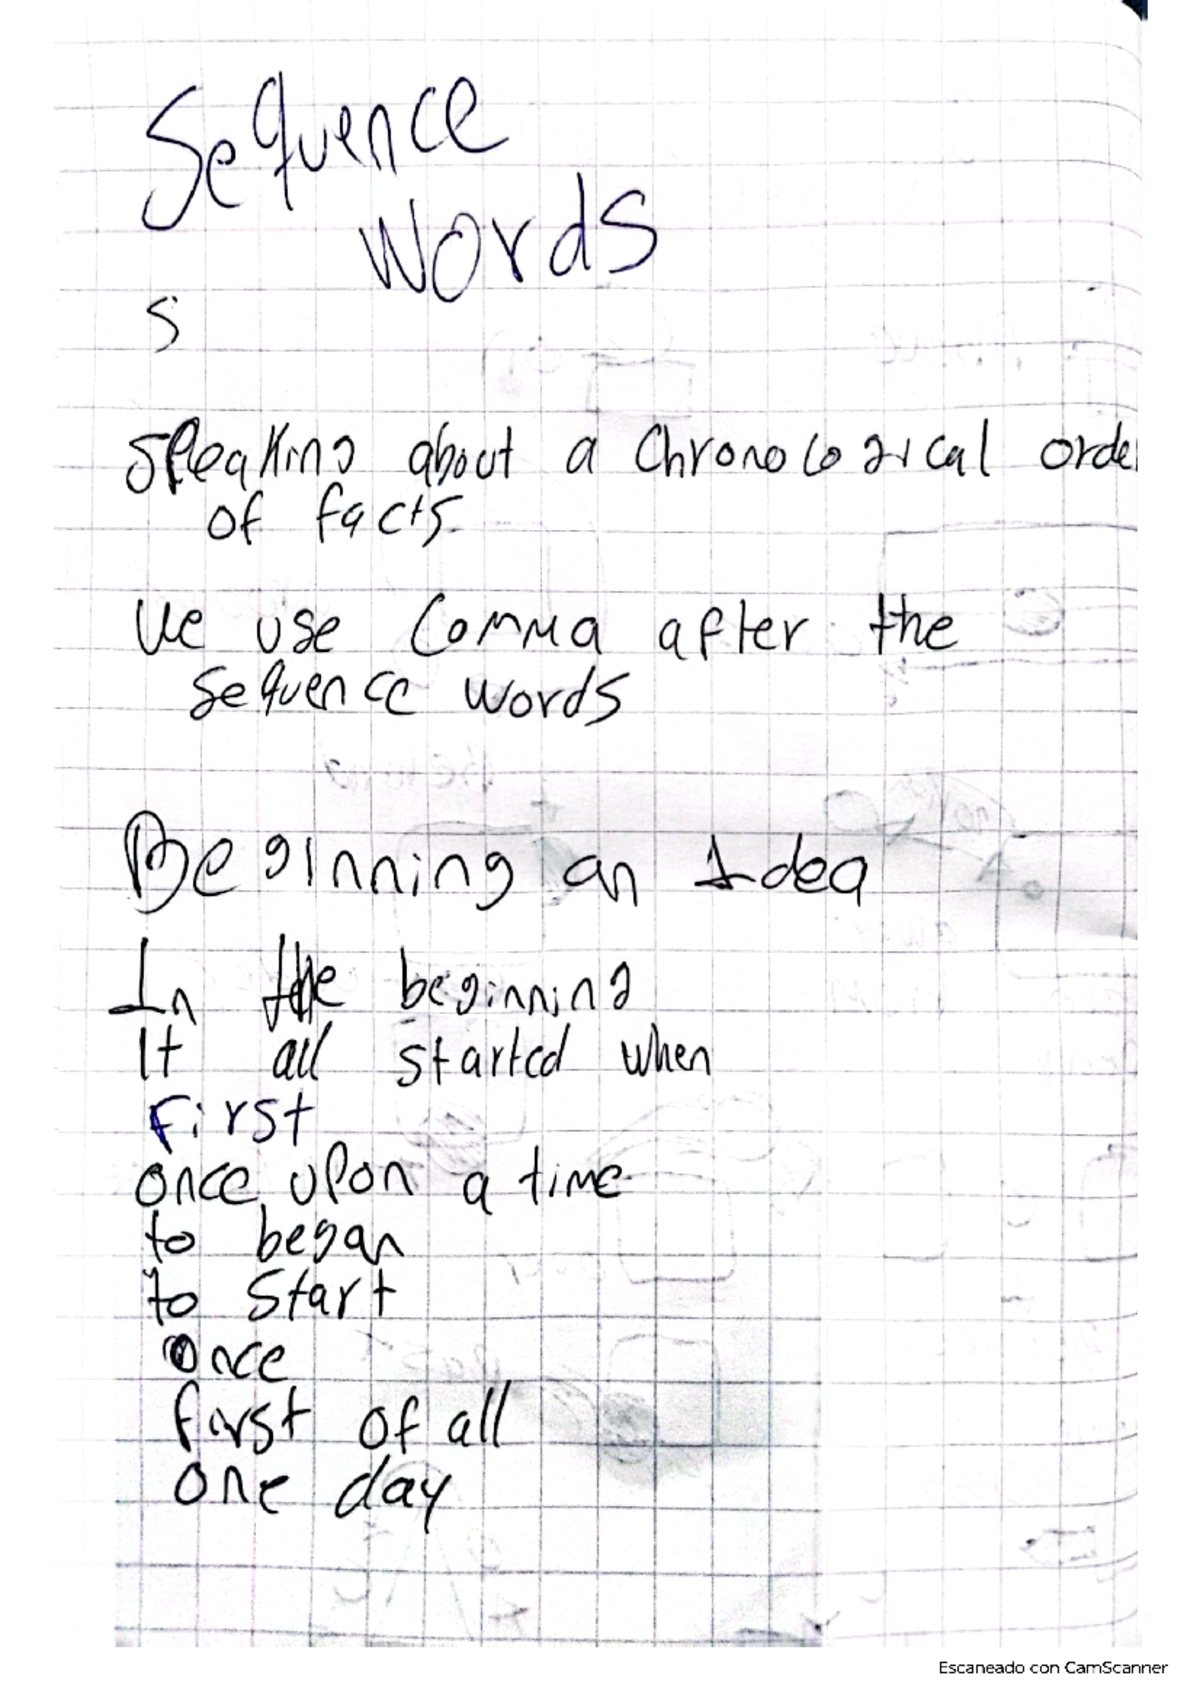 Sequence
words
S
Speaking about a chronological orde
of facts.
We use comma after the
sequence words
Beginning an Idea
In the beginning
It all started when
First
once upon a time
to began
to start
Once
first of all
one day
Escaneado con CamScanner